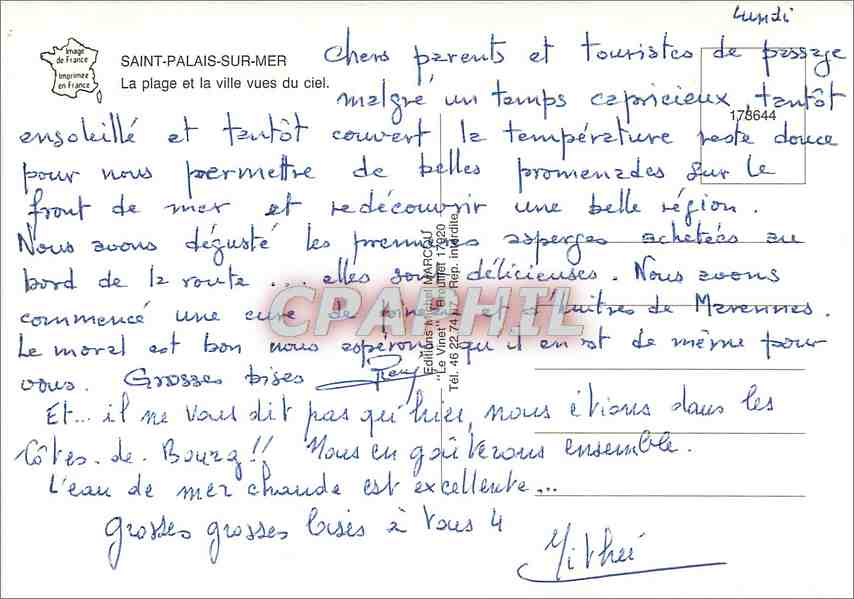 lundi
Image
de France
Imprimée
en France
SAINT-PALAIS-SUR-MER
La plage et la ville vues du ciel.
178644
Chers parents et touristes de passage
malgré un temps capricieux, tantôt
ensoleillé et tantôt couvert la température reste douce
pour nous permettre de belles promenades sur le
front de mer et redécouvrir une belle région.
Nous avons dégusté les premières asperges achetées au
bord de la route ... elles sont délicieuses. Nous avons
commencé une cure de et d'huitres de Marennes.
Le moral est bon nous espérons qu'il en est de même pour
vous. Grosses bises
Et... il ne vous dit pas qu'hier, nous étions dans les
Côtes-de-Bourg!! Nous en goûterons ensemble.
L'eau de mer chaude est excellente...
grosses grosses bises à vous 4
Editions Michel MARCOU
"Le Vinet" Breuillet 17920
Tél. 46 22.74 Rep. interdite
CPAPHIL